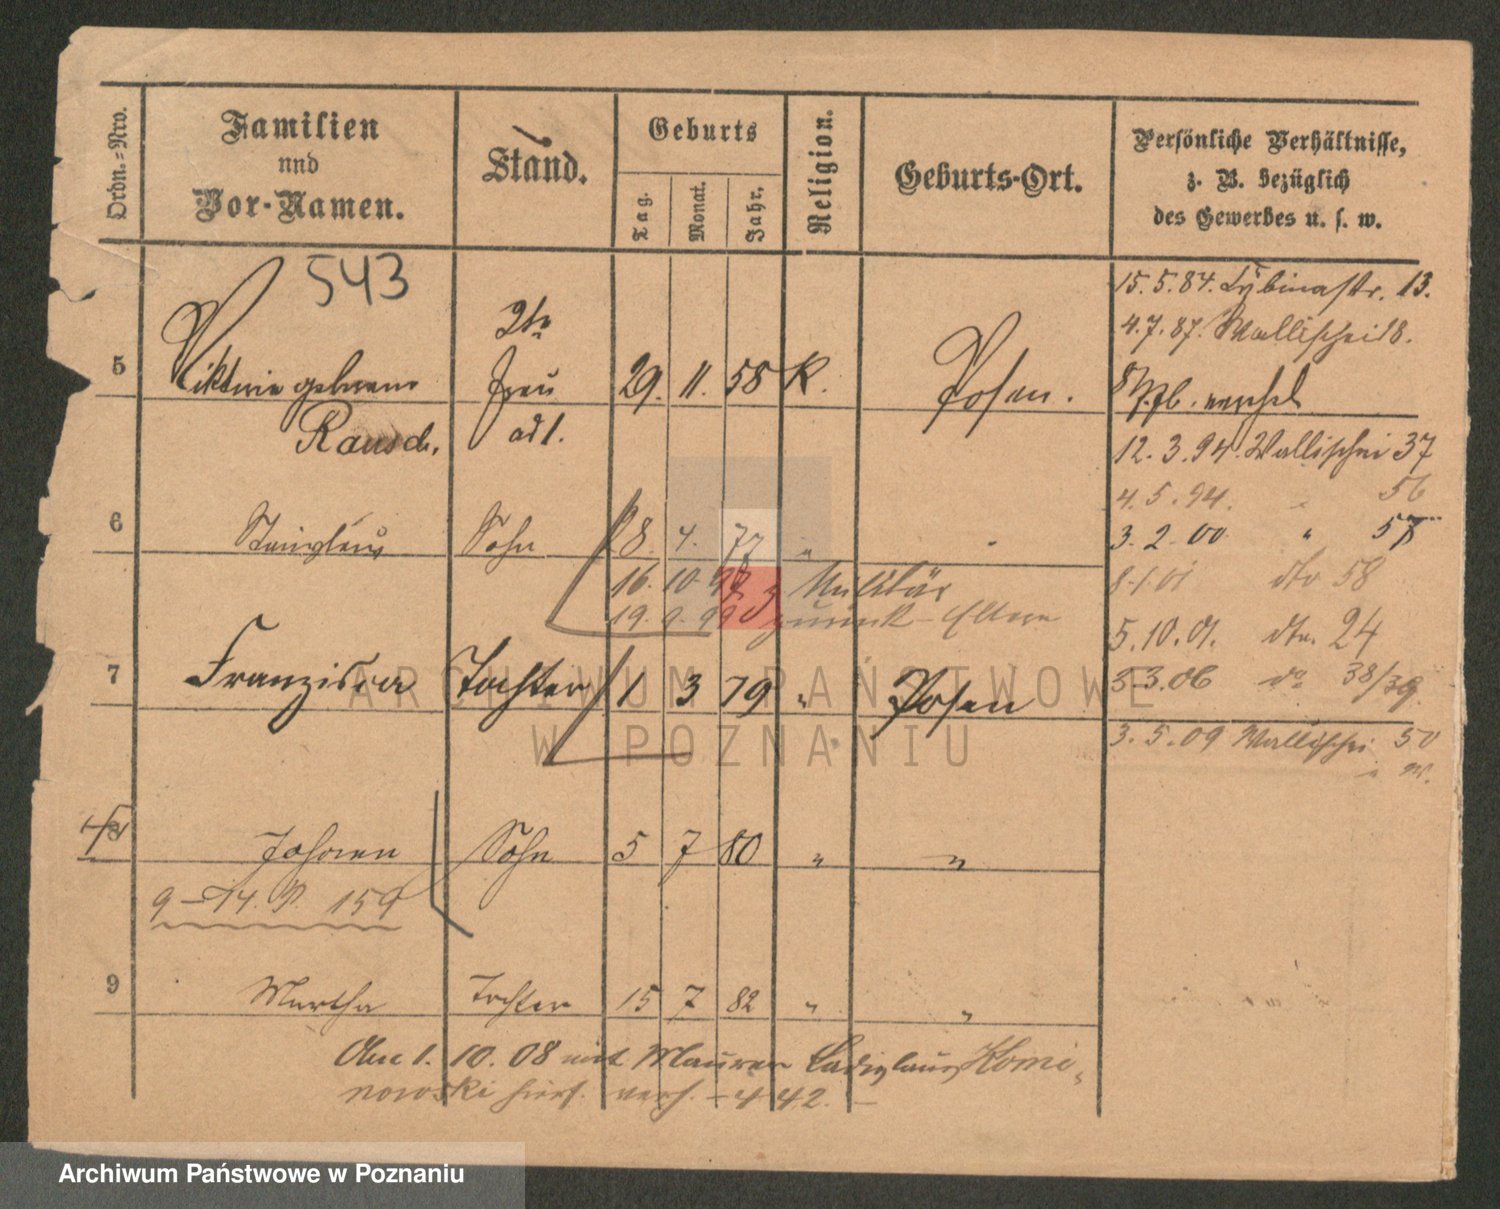 Ordn.-Nro.
Familien
und
Vor-Namen.
Stand.
Geburts
Tag.
Monat.
Jahr.
Religion.
Geburts-Ort.
Persönliche Verhältnisse,
z. B. bezüglich
des Gewerbes u. s. w.
543
15.5.84. Lybinastr. 13.
2te
4.7.87. Wallischei 18.
5 Viktoria geborene Frau 29. 11. 58 K. Posen.
Rausch.
12.3.94. Wallischei 37
4.5.94. " 56
6 Stanislaus Sohn 18. 4. 77 " "
3.2.00 " 57
16.10.97 z. Militär
8.1.01 dto 58
19.9.99 zurück – Eltern
5.10.01. dto. 24
7 Franziska Tochter 1 3 79 " Posen
5.3.06 do 38/39.
3.5.09 Wallischei 50
8 Johann Sohn 5 7 80 " "
9 – 14. P. 159
9 Martha Tochter 15 7 82 " "
Am 1. 10. 08 mit Maurer Ladislaus Komi-
nowski hiers. verh. – 442. –
ARCHIWUM PAŃSTWOWE
W POZNANIU
Archiwum Państwowe w Poznaniu